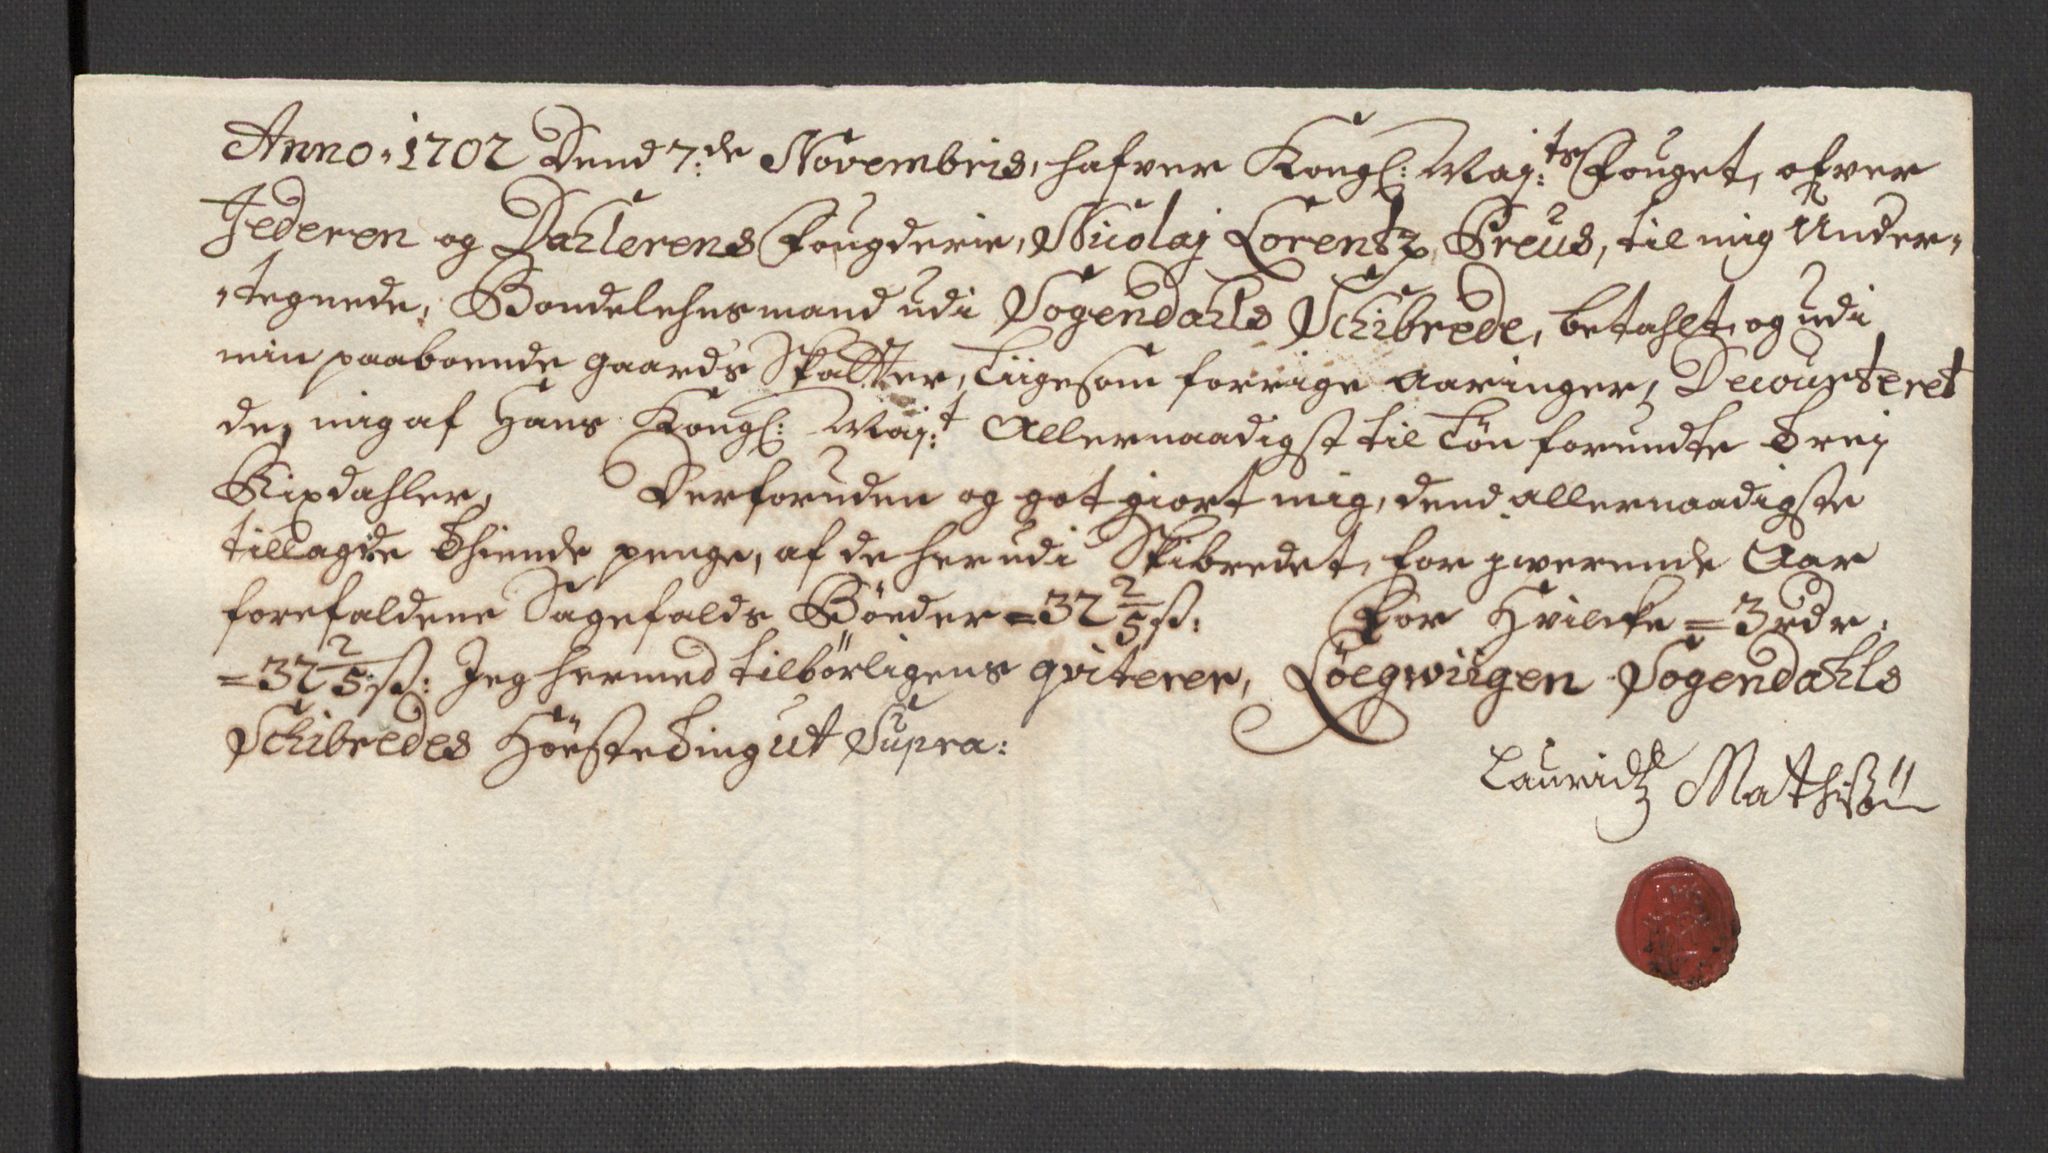 Anno 1702 Dend 7:de Novembris, hafver Kongl: Maj:ts Fouget, ofver
Jederen og Dahlerens Fougderie, Nicolaj Lorentz, Preus, til mig Under=
=tegnede, Bondelehnsmand udi Sogendahls Schibrede, betahlt, og udi
min paaboende gaards Skatter, Liigesom forrige Aaringer, Decourteret
de, mig af Hans Kongl: Maj:t Allernaadigst til Løn forundte Trej
Rixdahler, Derforuden og got giort mig, dend allernaadigste
tillagde Thiende penge, af de her udi Skibredet, for jwerende Aar
forefaldene Sagefalds Bøeder =32 2/5 ß: For Hvilcke =3 rdr:
=32 2/5 ß: Jeg hermed tilbørligens qviterer, Løegwiigen Sogendahls
Schibredes Høste Ting ut Supra:
Lauridtz Mathisøn